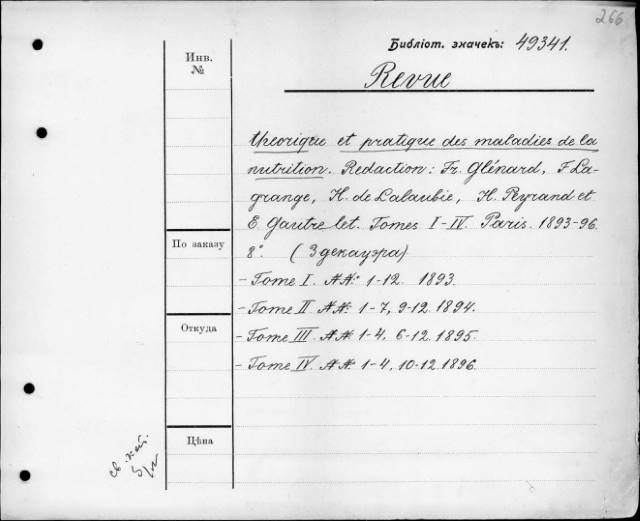 266
Библіот. значекъ: 49341.
Инв.
№
Revue
theorique et pratique des maladies de la
nutrition. Redaction: Fr. Glénard, F. La-
grange, H. de Lalaubie, H. Peyrand et
E. Gautrelet. Tomes I-IV. Paris. 1893-96.
8°. (Здекауэра)
По заказу
- Tome I. №№ 1-12. 1893.
- Tome II. №№ 1-7, 9-12. 1894.
Откуда
- Tome III. №№ 1-4, 6-12. 1895.
- Tome IV. №№ 1-4, 10-12. 1896.
Цѣна
св. кат.